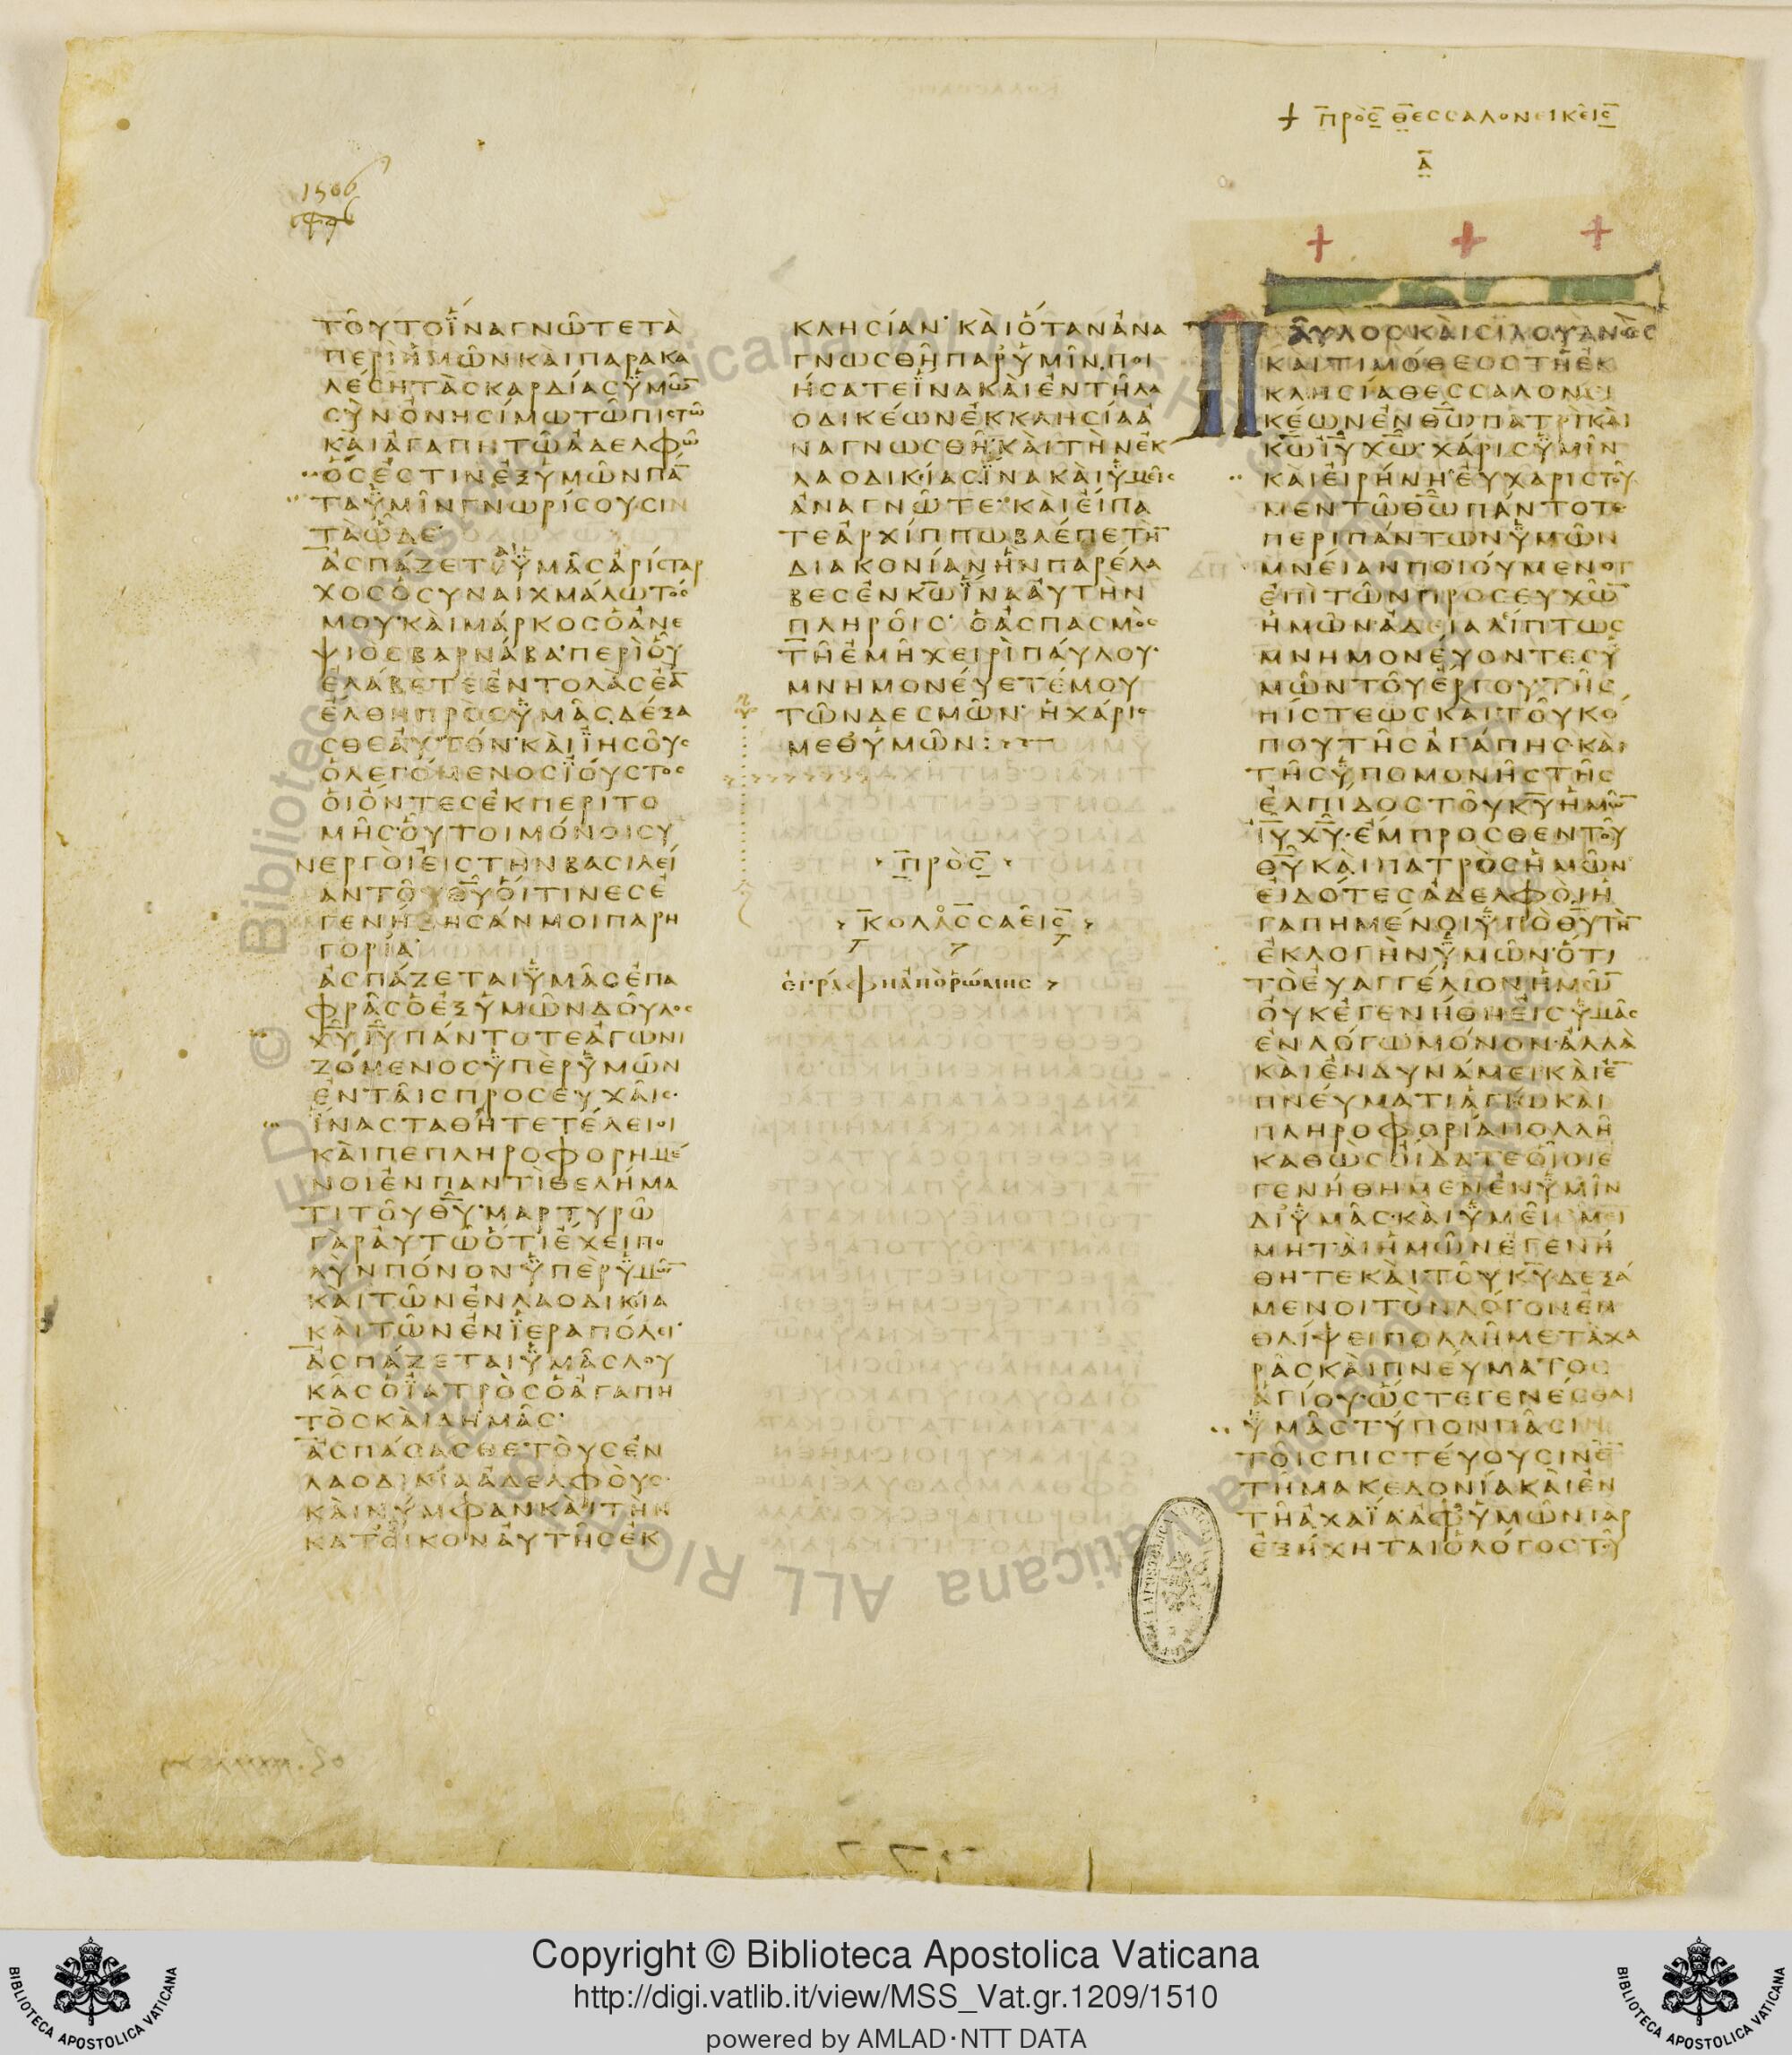 + ΠΡΟΣ ΘΕΣΣΑΛΟΝΕΙΚΕΙΣ
Α
1506
ΤΟΥΤΟΪΝΑΓΝΩΤΕΤΑ
ΠΕΡΙΗΜΩΝΚΑΙΠΑΡΑΚΑ
ΛΕϹΗΤΑϹΚΑΡΔΙΑϹΫΜΩ̅
ϹΥΝΟΝΗϹΙΜΩΤΩΠΙϹΤΩ
ΚΑΙΑΓΑΠΗΤΩΑΔΕΛΦΩ
ΟϹΕϹΤΙΝΕΞΫΜΩΝΠΑ̅
ΤΑΫΜΙΝΓΝΩΡΙϹΟΥϹΙΝ
ΤΑΩΔΕ
ΑϹΠΑΖΕΤΑΙΫΜΑϹΑΡΙϹΤΑΡ
ΧΟϹΟϹΥΝΑΙΧΜΑΛΩΤΟϹ
ΜΟΥ·ΚΑΙΜΑΡΚΟϹΟΑΝΕ
ΨΙΟϹΒΑΡΝΑΒΑ·ΠΕΡΙΟΥ
ΕΛΑΒΕΤΕΕΝΤΟΛΑϹΕΑ̅
ΕΛΘΗΠΡΟϹΫΜΑϹΔΕΞΑ
ϹΘΕΑΥΤΟΝ·ΚΑΙΪΗϹΟΥϹ
ΟΛΕΓΟΜΕΝΟϹΪΟΥϹΤΟϹ
ΟΙΟΝΤΕϹΕΚΠΕΡΙΤΟ
ΜΗϹ·ΟΥΤΟΙΜΟΝΟΙϹΥ
ΝΕΡΓΟΙΕΙϹΤΗΝΒΑϹΙΛΕΙ
ΑΝΤΟΥΘ̅Υ̅ΟΙΤΙΝΕϹΕ
ΓΕΝΗΘΗϹΑΝΜΟΙΠΑΡΗ
ΓΟΡΙΑ·
ΑϹΠΑΖΕΤΑΙΫΜΑϹΕΠΑ
ΦΡΑϹΟΕΞΫΜΩΝΔΟΥΛΟϹ
Χ̅Υ̅Ι̅Υ̅ΠΑΝΤΟΤΕΑΓΩΝΙ
ΖΟΜΕΝΟϹΫΠΕΡΫΜΩΝ
ΕΝΤΑΙϹΠΡΟϹΕΥΧΑΙϹ·
ΪΝΑϹΤΑΘΗΤΕΤΕΛΕΙΟΙ
ΚΑΙΠΕΠΛΗΡΟΦΟΡΗΜΕ
ΝΟΙΕΝΠΑΝΤΙΘΕΛΗΜΑ
ΤΙΤΟΥΘ̅Υ̅·ΜΑΡΤΥΡΩ
ΓΑΡΑΥΤΩΟΤΙΕΧΕΙΠΟ
ΛΥΝΠΟΝΟΝΫΠΕΡΫΜΩ̅
ΚΑΙΤΩΝΕΝΛΑΟΔΙΚΙΑ
ΚΑΙΤΩΝΕΝΪΕΡΑΠΟΛΕΙ·
ΑϹΠΑΖΕΤΑΙΫΜΑϹΛΟΥ
ΚΑϹΟΪΑΤΡΟϹΟΑΓΑΠΗ
ΤΟϹΚΑΙΔΗΜΑϹ·
ΑϹΠΑϹΑϹΘΕΤΟΥϹΕΝ
ΛΑΟΔΙΚΙΑΑΔΕΛΦΟΥϹ·
ΚΑΙΝΥΜΦΑΝΚΑΙΤΗΝ
ΚΑΤΟΙΚΟΝΑΥΤΗϹΕΚ
ΚΛΗϹΙΑΝ·ΚΑΙΟΤΑΝΑΝΑ
ΓΝΩϹΘΗΠΑΡΫΜΙΝΠΟΙ
ΗϹΑΤΕΪΝΑΚΑΙΕΝΤΗΛΑ
ΟΔΙΚΕΩΝΕΚΚΛΗϹΙΑΑ
ΝΑΓΝΩϹΘΗ·ΚΑΙΤΗΝΕΚ
ΛΑΟΔΙΚΙΑϹΪΝΑΚΑΙΫΜΕΙϹ
ΑΝΑΓΝΩΤΕ·ΚΑΙΕΙΠΑ
ΤΕΑΡΧΙΠΠΩΒΛΕΠΕΤΗ̅
ΔΙΑΚΟΝΙΑΝΗΝΠΑΡΕΛΑ
ΒΕϹΕΝΚ̅Ω̅ΪΝΑΑΥΤΗΝ
ΠΛΗΡΟΙϹ· ΟΑϹΠΑϹΜΟϹ
ΤΗΕΜΗΧΕΙΡΙΠΑΥΛΟΥ·
ΜΝΗΜΟΝΕΥΕΤΕΜΟΥ
ΤΩΝΔΕϹΜΩΝ· ΗΧΑΡΙϹ
ΜΕΘΫΜΩΝ:
ΠΡΟϹ
ΚΟΛΑϹϹΑΕΙϹ
ΕΓΡΑΦΗΑΠΟΡΩΜΗϹ
ΠΑΥΛΟϹΚΑΙϹΙΛΟΥΑΝΟϹ
ΚΑΙΤΙΜΟΘΕΟϹΤΗΕΚ
ΚΛΗϹΙΑΘΕϹϹΑΛΟΝΕΙ
ΚΕΩΝΕΝΘ̅Ω̅ΠΑΤΡΙΚΑΙ
Κ̅Ω̅Ι̅Υ̅Χ̅Ω̅·ΧΑΡΙϹΫΜΙΝ
ΚΑΙΕΙΡΗΝΗ·ΕΥΧΑΡΙϹΤΟΥ
ΜΕΝΤΩΘ̅Ω̅ΠΑΝΤΟΤΕ
ΠΕΡΙΠΑΝΤΩΝΫΜΩΝ
ΜΝΕΙΑΝΠΟΙΟΥΜΕΝΟΙ
ΕΠΙΤΩΝΠΡΟϹΕΥΧΩ̅
ΗΜΩΝ·ΑΔΙΑΛΙΠΤΩϹ
ΜΝΗΜΟΝΕΥΟΝΤΕϹΫ
ΜΩΝΤΟΥΕΡΓΟΥΤΗϹ
ΠΙϹΤΕΩϹΚΑΙΤΟΥΚΟ
ΠΟΥΤΗϹΑΓΑΠΗϹ·ΚΑΙ
ΤΗϹΫΠΟΜΟΝΗϹΤΗϹ
ΕΛΠΙΔΟϹΤΟΥΚ̅Υ̅ΗΜΩ̅
Ι̅Υ̅Χ̅Υ̅·ΕΜΠΡΟϹΘΕΝΤΟΥ
Θ̅Υ̅ΚΑΙΠΑΤΡΟϹΗΜΩΝ
ΕΙΔΟΤΕϹΑΔΕΛΦΟΙΗ
ΓΑΠΗΜΕΝΟΙΫΠΟΘ̅Υ̅ΤΗ̅
ΕΚΛΟΓΗΝΫΜΩΝ·ΟΤΙ
ΤΟΕΥΑΓΓΕΛΙΟΝΗΜΩ̅
ΟΥΚΕΓΕΝΗΘΗΕΙϹΫΜΑϹ
ΕΝΛΟΓΩΜΟΝΟΝ·ΑΛΛΑ
ΚΑΙΕΝΔΥΝΑΜΕΙΚΑΙΕ̅
ΠΝΕΥΜΑΤΙΑΓΙΩΚΑΙ
ΠΛΗΡΟΦΟΡΙΑΠΟΛΛΗ
ΚΑΘΩϹΟΙΔΑΤΕΟΙΟΙΕ
ΓΕΝΗΘΗΜΕΝΕΝΫΜΙΝ
ΔΙΫΜΑϹ·ΚΑΙΫΜΕΙϹΜΕΙ
ΜΗΤΑΙΗΜΩΝΕΓΕΝΗ
ΘΗΤΕΚΑΙΤΟΥΚ̅Υ̅·ΔΕΞΑ
ΜΕΝΟΙΤΟΝΛΟΓΟΝΕΝ
ΘΛΙΨΕΙΠΟΛΛΗΜΕΤΑΧΑ
ΡΑϹΚΑΙΠΝΕΥΜΑΤΟϹ
ΑΓΙΟΥ·ΩϹΤΕΓΕΝΕϹΘΑΙ
ΫΜΑϹΤΥΠΟΝΠΑϹΙΝ
ΤΟΙϹΠΙϹΤΕΥΟΥϹΙΝΕ̅
ΤΗΜΑΚΕΔΟΝΙΑΚΑΙΕΝ
ΤΗΑΧΑΪΑ·ΑΦΫΜΩΝΓΑΡ
ΕΞΗΧΗΤΑΙΟΛΟΓΟϹΤΟΥ
Copyright © Biblioteca Apostolica Vaticana
http://digi.vatlib.it/view/MSS_Vat.gr.1209/1510
powered by AMLAD·NTT DATA
BIBLIOTECA APOSTOLICA VATICANA
BIBLIOTECA APOSTOLICA VATICANA